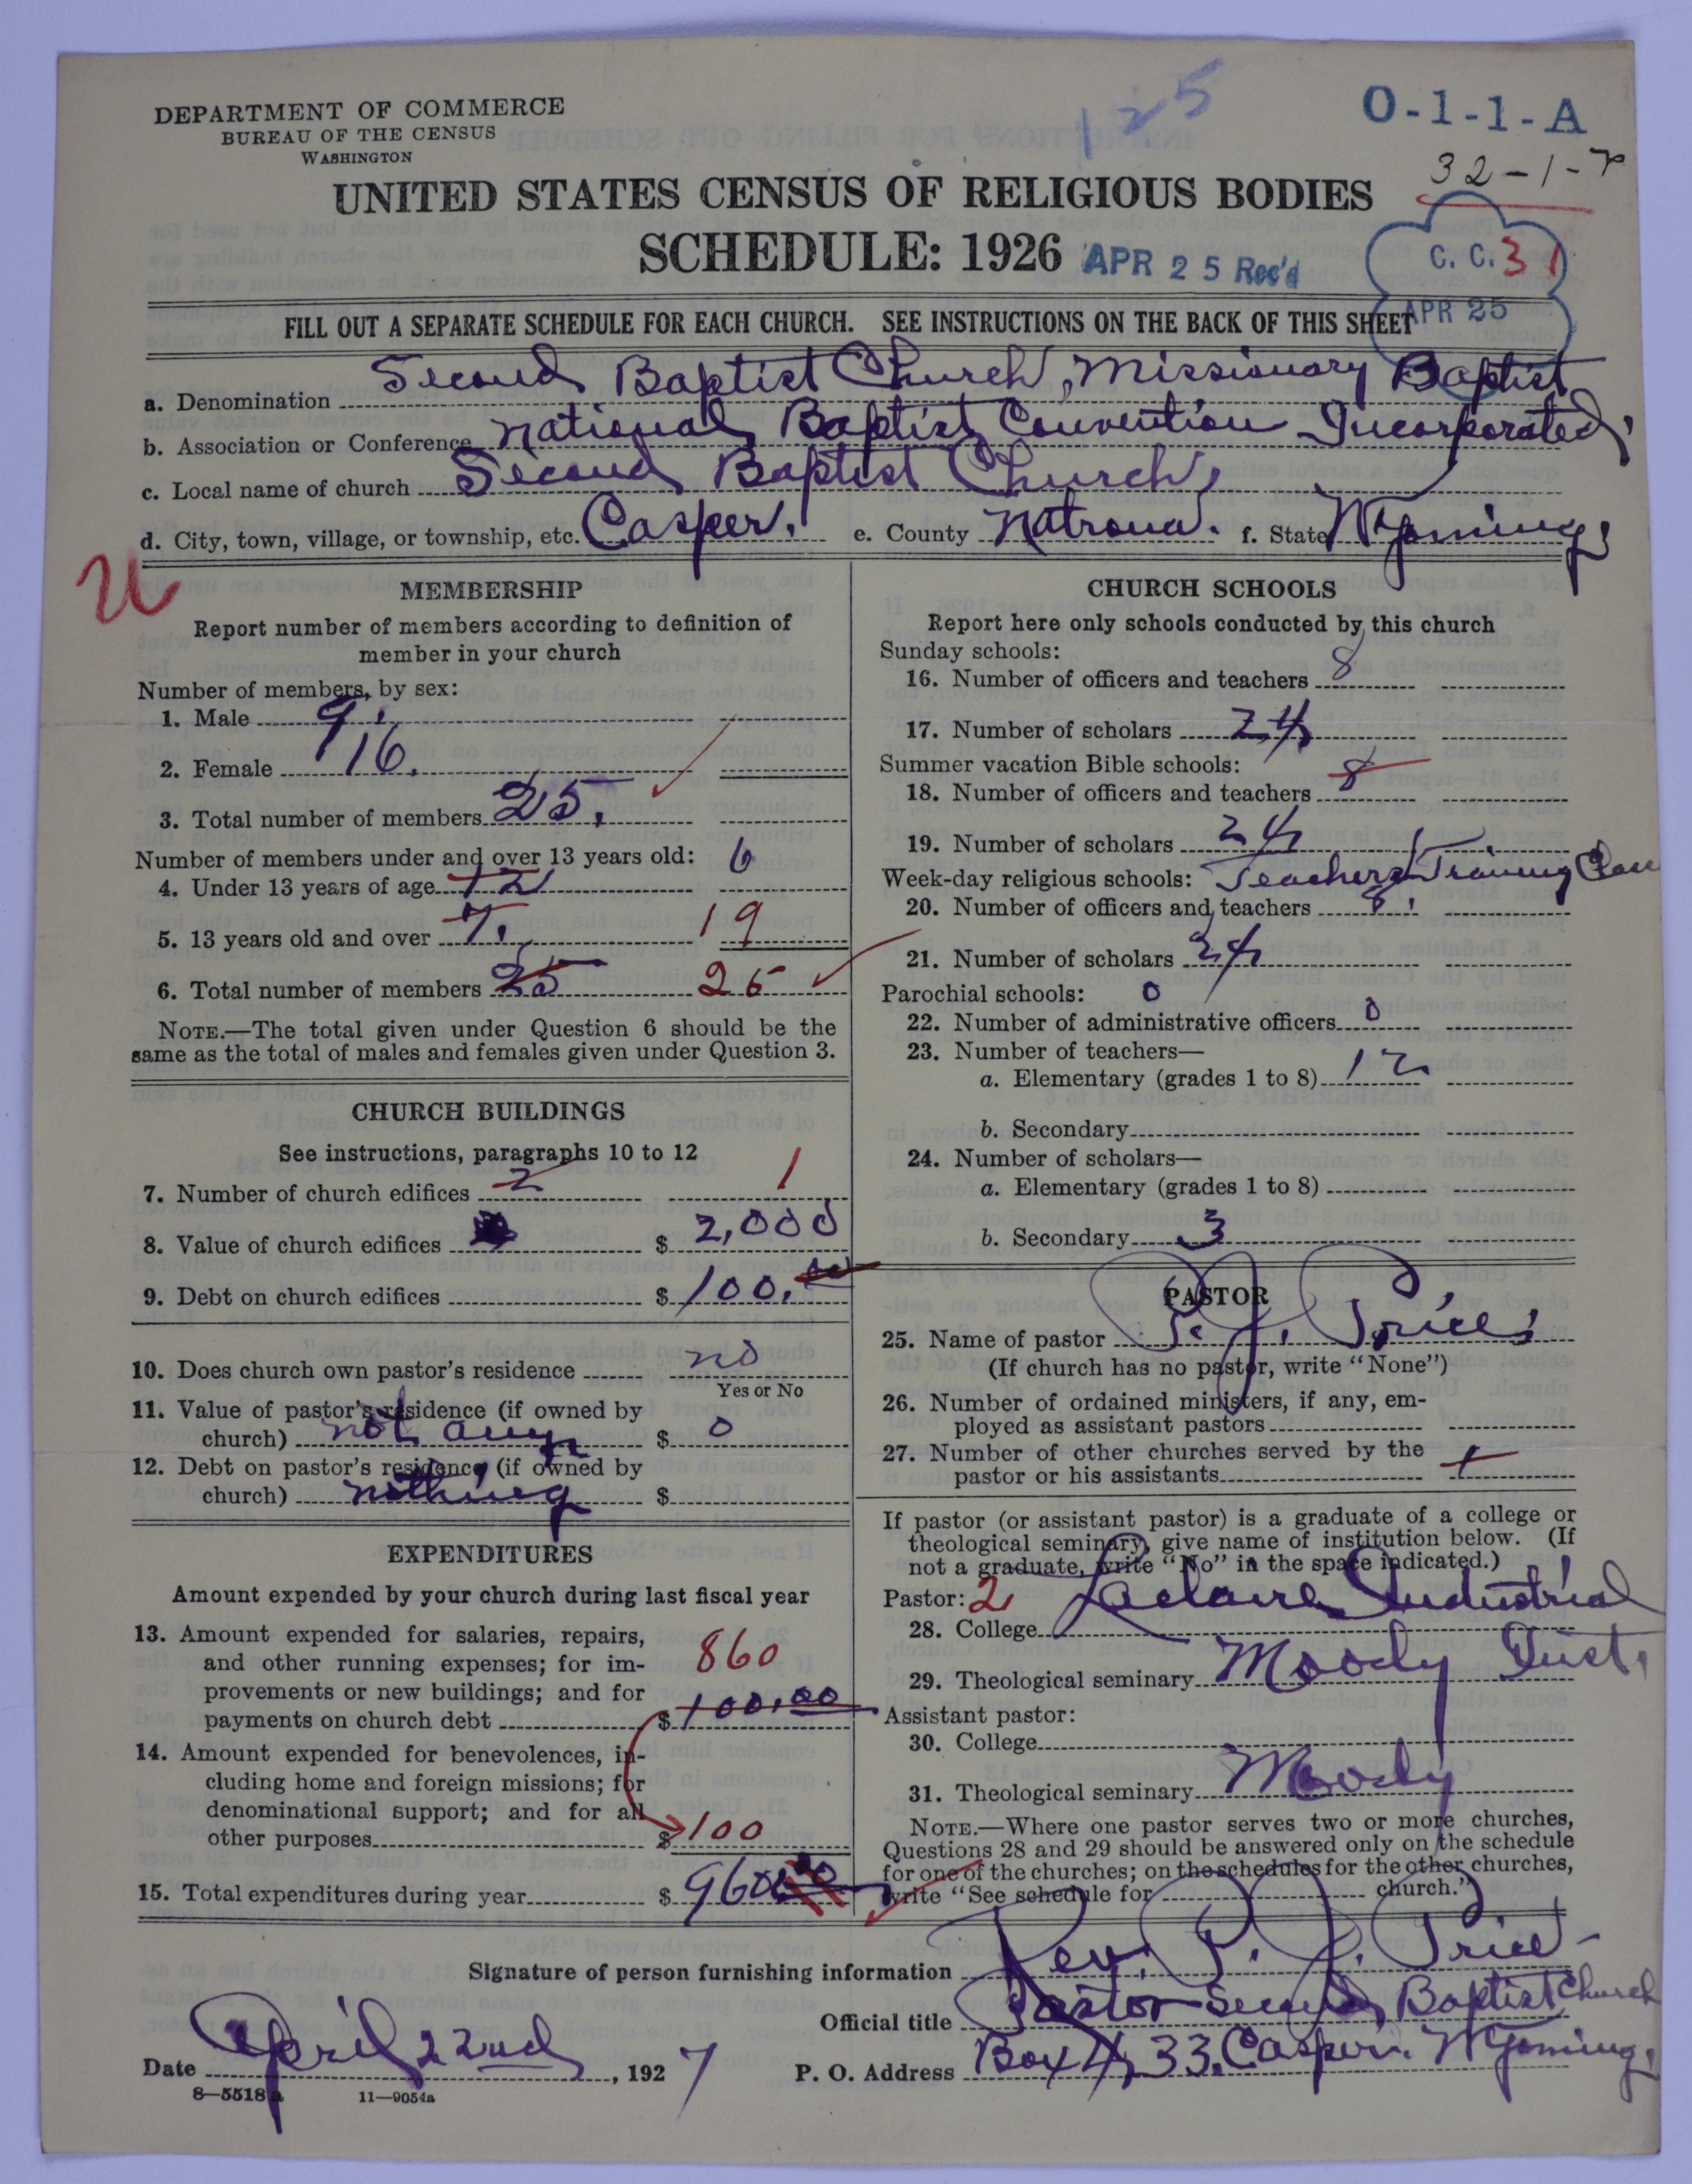 DEPARTMENT OF COMMERCE
BUREAU OF THE CENSUS
WASHINGTON
125
O-1-1-A
32-1-7
UNITED STATES CENSUS OF RELIGIOUS BODIES
SCHEDULE: 1926
APR 25 Rec'd
C. C. 31
APR 25
FILL OUT A SEPARATE SCHEDULE FOR EACH CHURCH. SEE INSTRUCTIONS ON THE BACK OF THIS SHEET
a. Denomination Second Baptist Church, Missionary Baptist
b. Association or Conference National Baptist Convention Incorporated,
c. Local name of church Second Baptist Church,
d. City, town, village, or township, etc. Casper. e. County Natrona. f. State Wyoming,
MEMBERSHIP
Report number of members according to definition of
member in your church
Number of members, by sex:
1. Male 9.
2. Female 16.
3. Total number of members 25.
Number of members under and over 13 years old:
4. Under 13 years of age 12 6
5. 13 years old and over 7. 19
6. Total number of members 25 25
NOTE.—The total given under Question 6 should be the
same as the total of males and females given under Question 3.
CHURCH BUILDINGS
See instructions, paragraphs 10 to 12
7. Number of church edifices 2 1
8. Value of church edifices $ 2,000
9. Debt on church edifices $ 100.00
10. Does church own pastor's residence no
Yes or No
11. Value of pastor's residence (if owned by
church) not any $ 0
12. Debt on pastor's residence (if owned by
church) nothing $
EXPENDITURES
Amount expended by your church during last fiscal year
13. Amount expended for salaries, repairs,
and other running expenses; for im- 860
provements or new buildings; and for
payments on church debt $ 100.00
14. Amount expended for benevolences, in-
cluding home and foreign missions; for
denominational support; and for all
other purposes $ 100
15. Total expenditures during year $ 960
CHURCH SCHOOLS
Report here only schools conducted by this church
Sunday schools:
16. Number of officers and teachers 8
17. Number of scholars 24
Summer vacation Bible schools:
18. Number of officers and teachers 8
19. Number of scholars 24
Week-day religious schools: Teachers Training Class
20. Number of officers and teachers 8.
21. Number of scholars 24
Parochial schools: 0
22. Number of administrative officers 0
23. Number of teachers—
a. Elementary (grades 1 to 8) 12
b. Secondary
24. Number of scholars—
a. Elementary (grades 1 to 8)
b. Secondary 3
PASTOR
25. Name of pastor P. J. Price,
(If church has no pastor, write "None")
26. Number of ordained ministers, if any, em-
ployed as assistant pastors
27. Number of other churches served by the
pastor or his assistants 1
If pastor (or assistant pastor) is a graduate of a college or
theological seminary, give name of institution below. (If
not a graduate, write "No" in the space indicated.)
Pastor: 2
28. College Industrial
29. Theological seminary Moody Inst.
Assistant pastor:
30. College
31. Theological seminary Moody
NOTE.—Where one pastor serves two or more churches,
Questions 28 and 29 should be answered only on the schedule
for one of the churches; on the schedules for the other churches,
write "See schedule for church."
Signature of person furnishing information Rev. P. J. Price
Official title Pastor Second Baptist Church
Date April 22nd, 1927 P. O. Address Box 433. Casper. Wyoming,
8-5518a 11-9054a